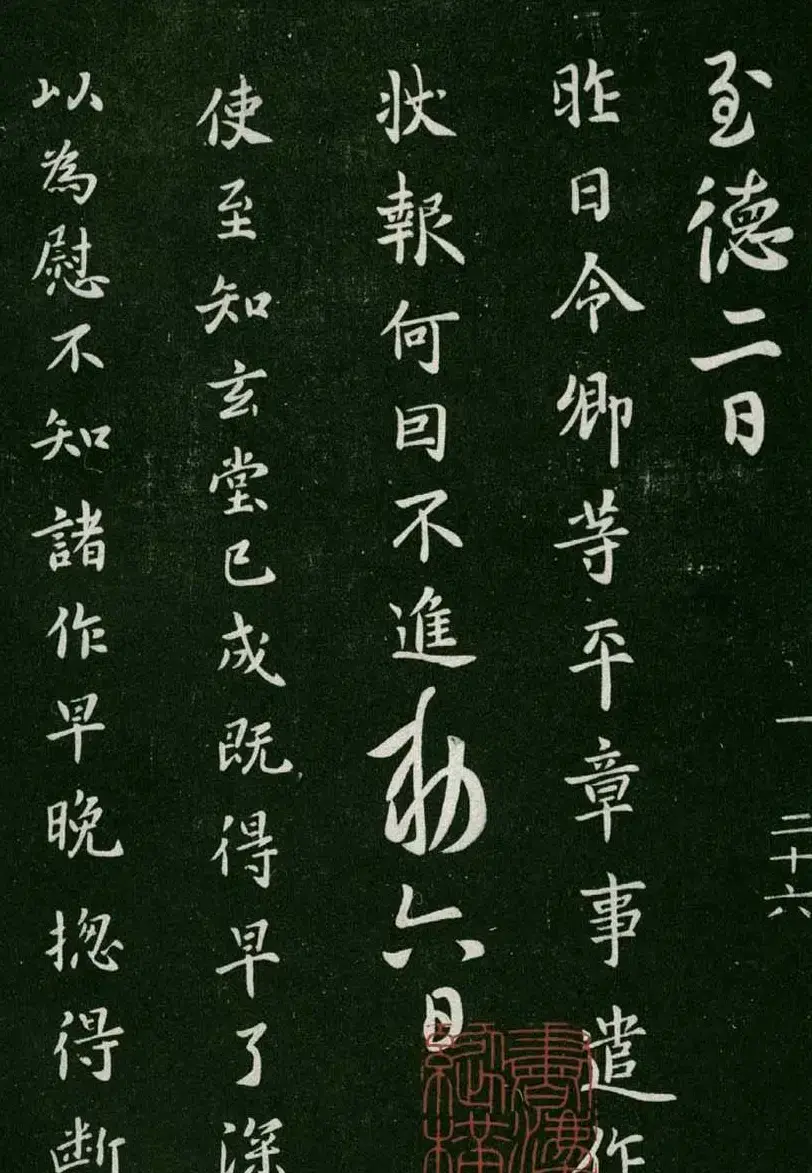 至德二日
昨日令卿等平章事遣作
状報何因不進勅六日
使至知玄堂已成既得早了深
以為慰不知諸作早晚揔得断
一 二十六